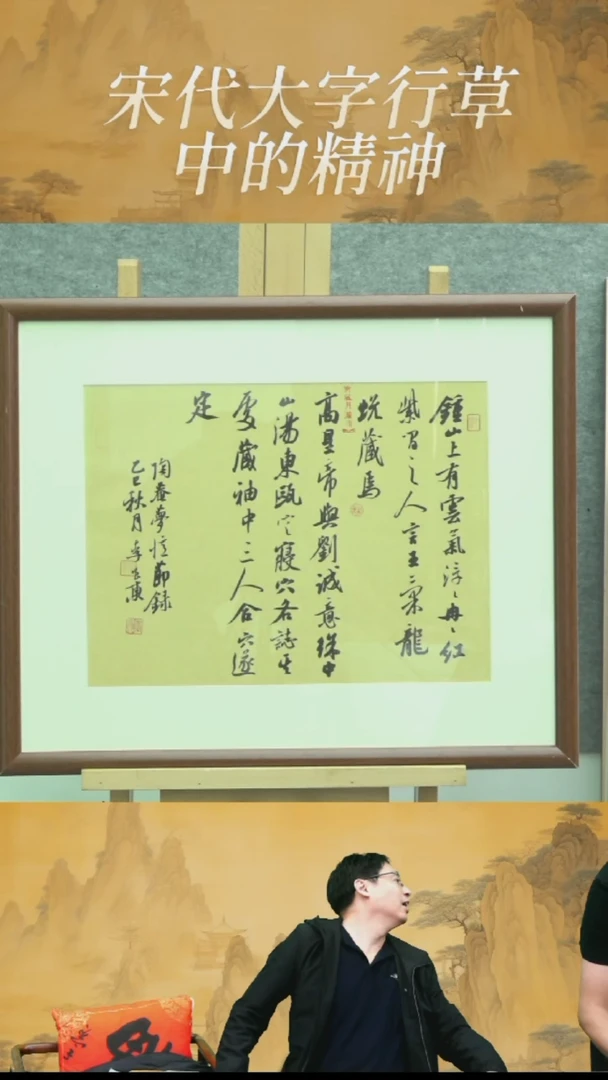 宋代大字行草
中的精神
鍾山上有雲氣浮〻冉〻紅
紫間之人言王氣龍
蛻藏焉
高皇帝與劉誠意徐中
山湯東甌定寢穴各誌其
處藏袖中三人合穴遂
定
陶庵夢憶節錄
乙巳秋月李